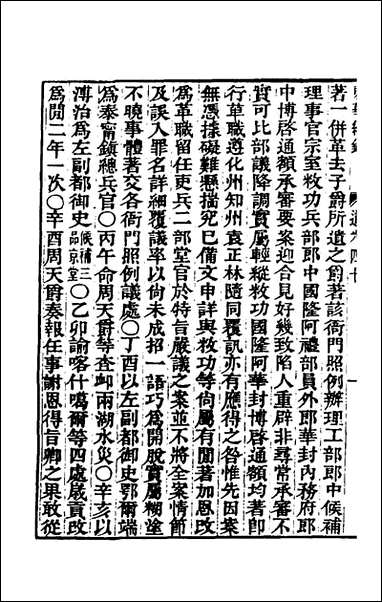 著一併革去子爵所遺之爵著該衙門照例辦理工部郎中候補
理事官宗室敉功兵部郎中國隆阿禮部員外郎華封內務府郎
中博啓通額承審要案迎合見好幾致陷人重辟非尋常承審不
實可比部議降調實屬輕縱敉功國隆阿華封博啓通額均著卽
行革職遵化州知州袁正林隨同覆訊亦有應得之咎惟先因案
無憑據礙難懸揣究已備文申詳與敉功等尙屬有閒著加恩改
爲革職留任吏兵二部堂官於特旨嚴議之案並不將全案情節
及誤人罪名詳細覆議率以尙未成招一語巧爲開脫實屬糊塗
不曉事體著交各衙門照例議處〇丁酉以左副都御史鄂爾端
爲泰甯鎭總兵官〇丙午命周天爵等查卹兩湖水災〇辛亥以
溥治爲左副都御史候補三品京堂〇乙卯諭喀什噶爾等四處歲貢改
爲閒二年一次〇辛酉周天爵奏報任事謝恩得旨卿之果敢從